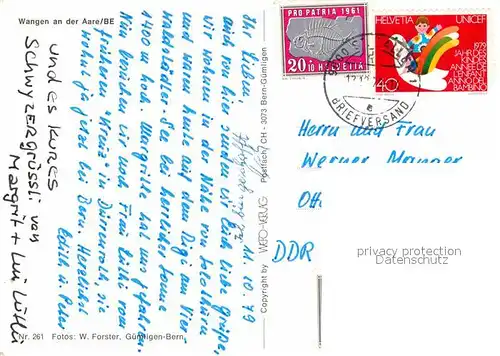 Wangen an der Aare/BE
11.10.79
Ihr Lieben,
auch hier senden wir Euch liebe Grüße,
wir wohnen in der Nähe von Solothurn
und waren heute auf dem Rigi am Vier-
waldstätter-See bei herrlicher Sonne
1400 m hoch, Margritli hat uns gefahren.
Nun besuchen wir noch Frau Lilli vom
in Dürrenroth, die
ja jetzt bei Bern. Herzlichst
Edith u. Peter
Und es kurzes
Schwyzergrüssli von
Margrit +
Nr. 261 Fotos: W. Forster, Gümligen-Bern
Copyright by WERO-VERLAG Postfach CH - 3073 Bern-Gümligen
PRO PATRIA 1961
20+10 HELVETIA
HELVETIA UNICEF
1979
JAHR DES
KINDES
ANNEE DE
L'ENFANT
ANNO DEL
BAMBINO
40
BRIEFVERSAND
e
Herrn und Frau
Werner
Ott
DDR
privacy protection
Datenschutz